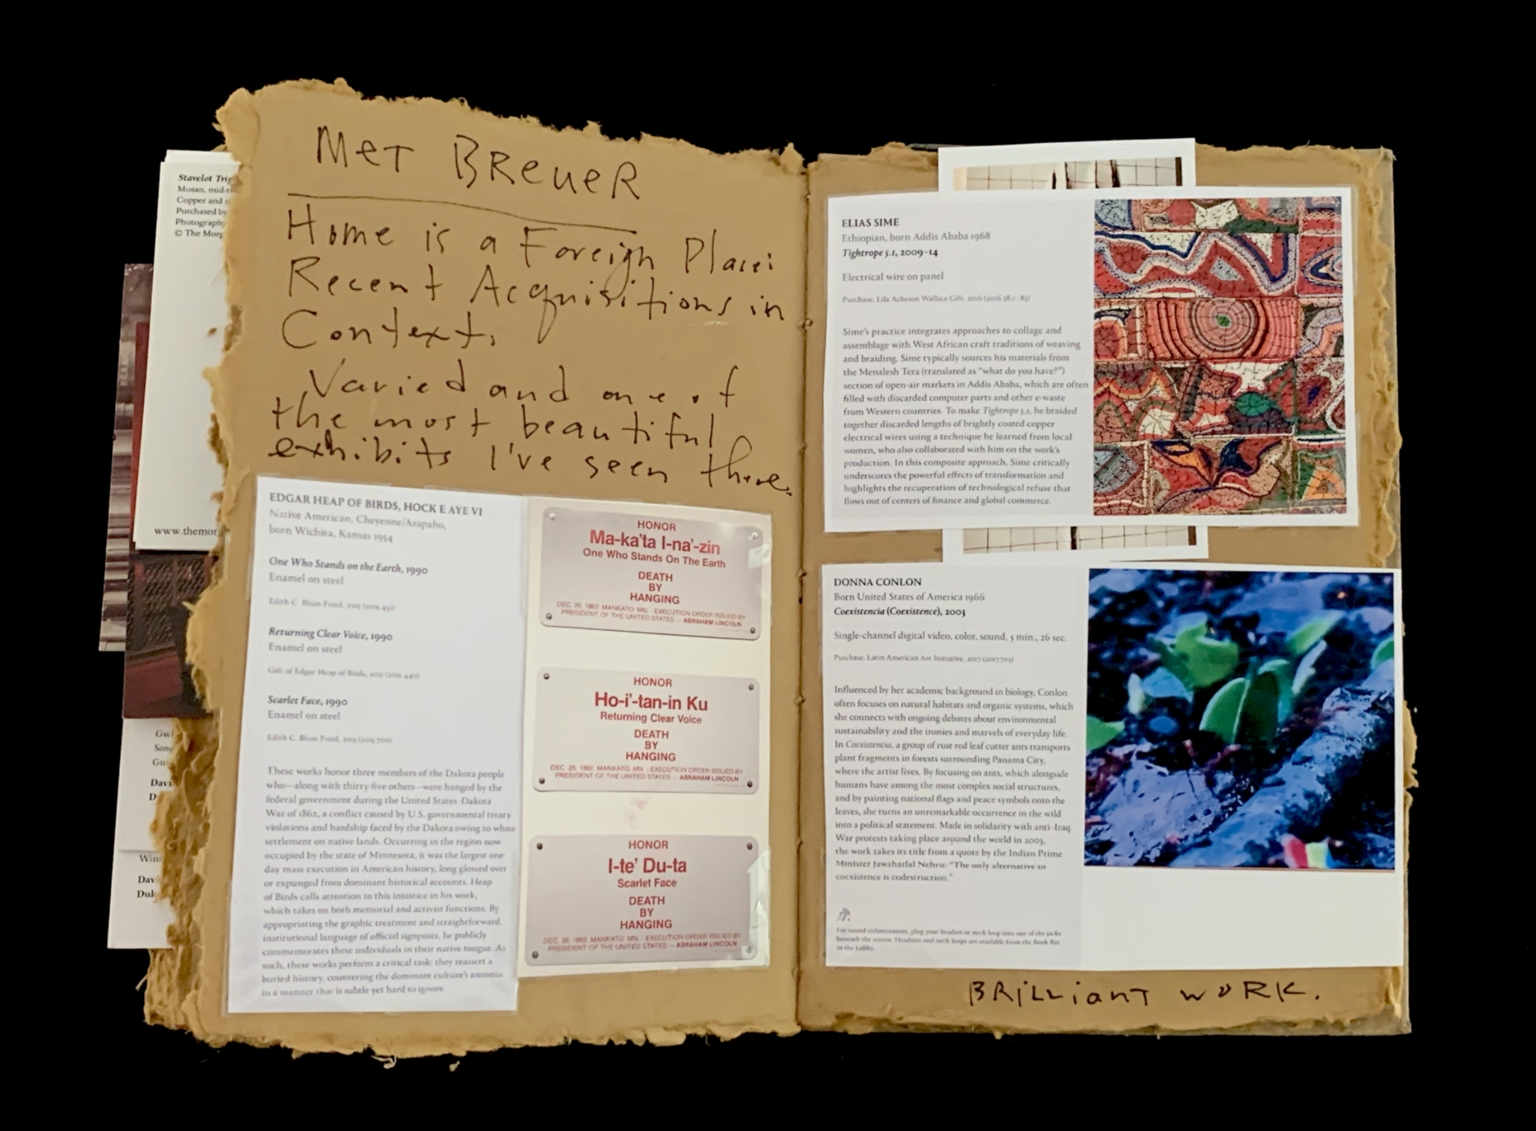 Met Breuer
Home is a Foreign Place:
Recent Acquisitions in
Context.
Varied and one of
the most beautiful
exhibits I've seen there.
Stavelot Trip
Mosan, mid-
Copper and
Purchased by
Photograph
© The Morg
www.themor
Son
Davi
D
Win
Dav
Duk
EDGAR HEAP OF BIRDS, HOCK E AYE VI
Native American, Cheyenne/Arapaho,
born Wichita, Kansas 1954
One Who Stands on the Earth, 1990
Enamel on steel
Edith C. Blum Fund, 2019
Returning Clear Voice, 1990
Enamel on steel
Gift of Edgar Heap of Birds, 2019
Scarlet Face, 1990
Enamel on steel
Edith C. Blum Fund, 2019
These works honor three members of the Dakota people
who—along with thirty-five others—were hanged by the
federal government during the United States–Dakota
War of 1862, a conflict caused by U.S. governmental treaty
violations and hardship faced by the Dakota owing to white
settlement on native lands. Occurring in the region now
occupied by the state of Minnesota, it was the largest one-
day mass execution in American history, long glossed over
or expunged from dominant historical accounts. Heap
of Birds calls attention to this injustice in his work,
which takes on both memorial and activist functions. By
appropriating the graphic treatment and straightforward,
institutional language of official signposts, he publicly
commemorates these individuals in their native tongue. As
such, these works perform a critical task: they reassert a
buried history, countering the dominant culture's amnesia
in a manner that is subtle yet hard to ignore.
HONOR
Ma-ka'ta I-na'-zin
One Who Stands On The Earth
DEATH
BY
HANGING
DEC. 26, 1862, MANKATO, MN - EXECUTION ORDER ISSUED BY
PRESIDENT OF THE UNITED STATES — ABRAHAM LINCOLN
HONOR
Ho-i'-tan-in Ku
Returning Clear Voice
DEATH
BY
HANGING
DEC. 26, 1862, MANKATO, MN - EXECUTION ORDER ISSUED BY
PRESIDENT OF THE UNITED STATES — ABRAHAM LINCOLN
HONOR
I-te' Du-ta
Scarlet Face
DEATH
BY
HANGING
DEC. 26, 1862, MANKATO, MN - EXECUTION ORDER ISSUED BY
PRESIDENT OF THE UNITED STATES — ABRAHAM LINCOLN
ELIAS SIME
Ethiopian, born Addis Ababa 1968
Tightrope 5.1, 2009–14
Electrical wire on panel
Purchase, Lila Acheson Wallace Gift, 2016
Sime's practice integrates approaches to collage and
assemblage with West African craft traditions of weaving
and braiding. Sime typically sources his materials from
the Menalesh Tera (translated as "what do you have?")
section of open-air markets in Addis Ababa, which are often
filled with discarded computer parts and other e-waste
from Western countries. To make Tightrope 5.1, he braided
together discarded lengths of brightly coated copper
electrical wires using a technique he learned from local
women, who also collaborated with him on the work's
production. In this composite approach, Sime critically
underscores the powerful effects of transformation and
highlights the recuperation of technological refuse that
flows out of centers of finance and global commerce.
DONNA CONLON
Born United States of America 1966
Coexistencia (Coexistence), 2003
Single-channel digital video, color, sound, 5 min., 26 sec.
Purchase, Latin American Art Initiative, 2017
Influenced by her academic background in biology, Conlon
often focuses on natural habitats and organic systems, which
she connects with ongoing debates about environmental
sustainability and the ironies and marvels of everyday life.
In Coexistencia, a group of rust red leaf cutter ants transports
plant fragments in forests surrounding Panama City,
where the artist lives. By focusing on ants, which alongside
humans have among the most complex social structures,
and by painting national flags and peace symbols onto the
leaves, she turns an unremarkable occurrence in the wild
into a political statement. Made in solidarity with anti-Iraq
War protests taking place around the world in 2003,
the work takes its title from a quote by the Indian Prime
Minister Jawaharlal Nehru: "The only alternative to
coexistence is codestruction."
For sound enhancement, plug your headset or neck loop into one of the jacks
beneath the screen. Headsets and neck loops are available from the Book Bar
in the Lobby.
Brilliant work.